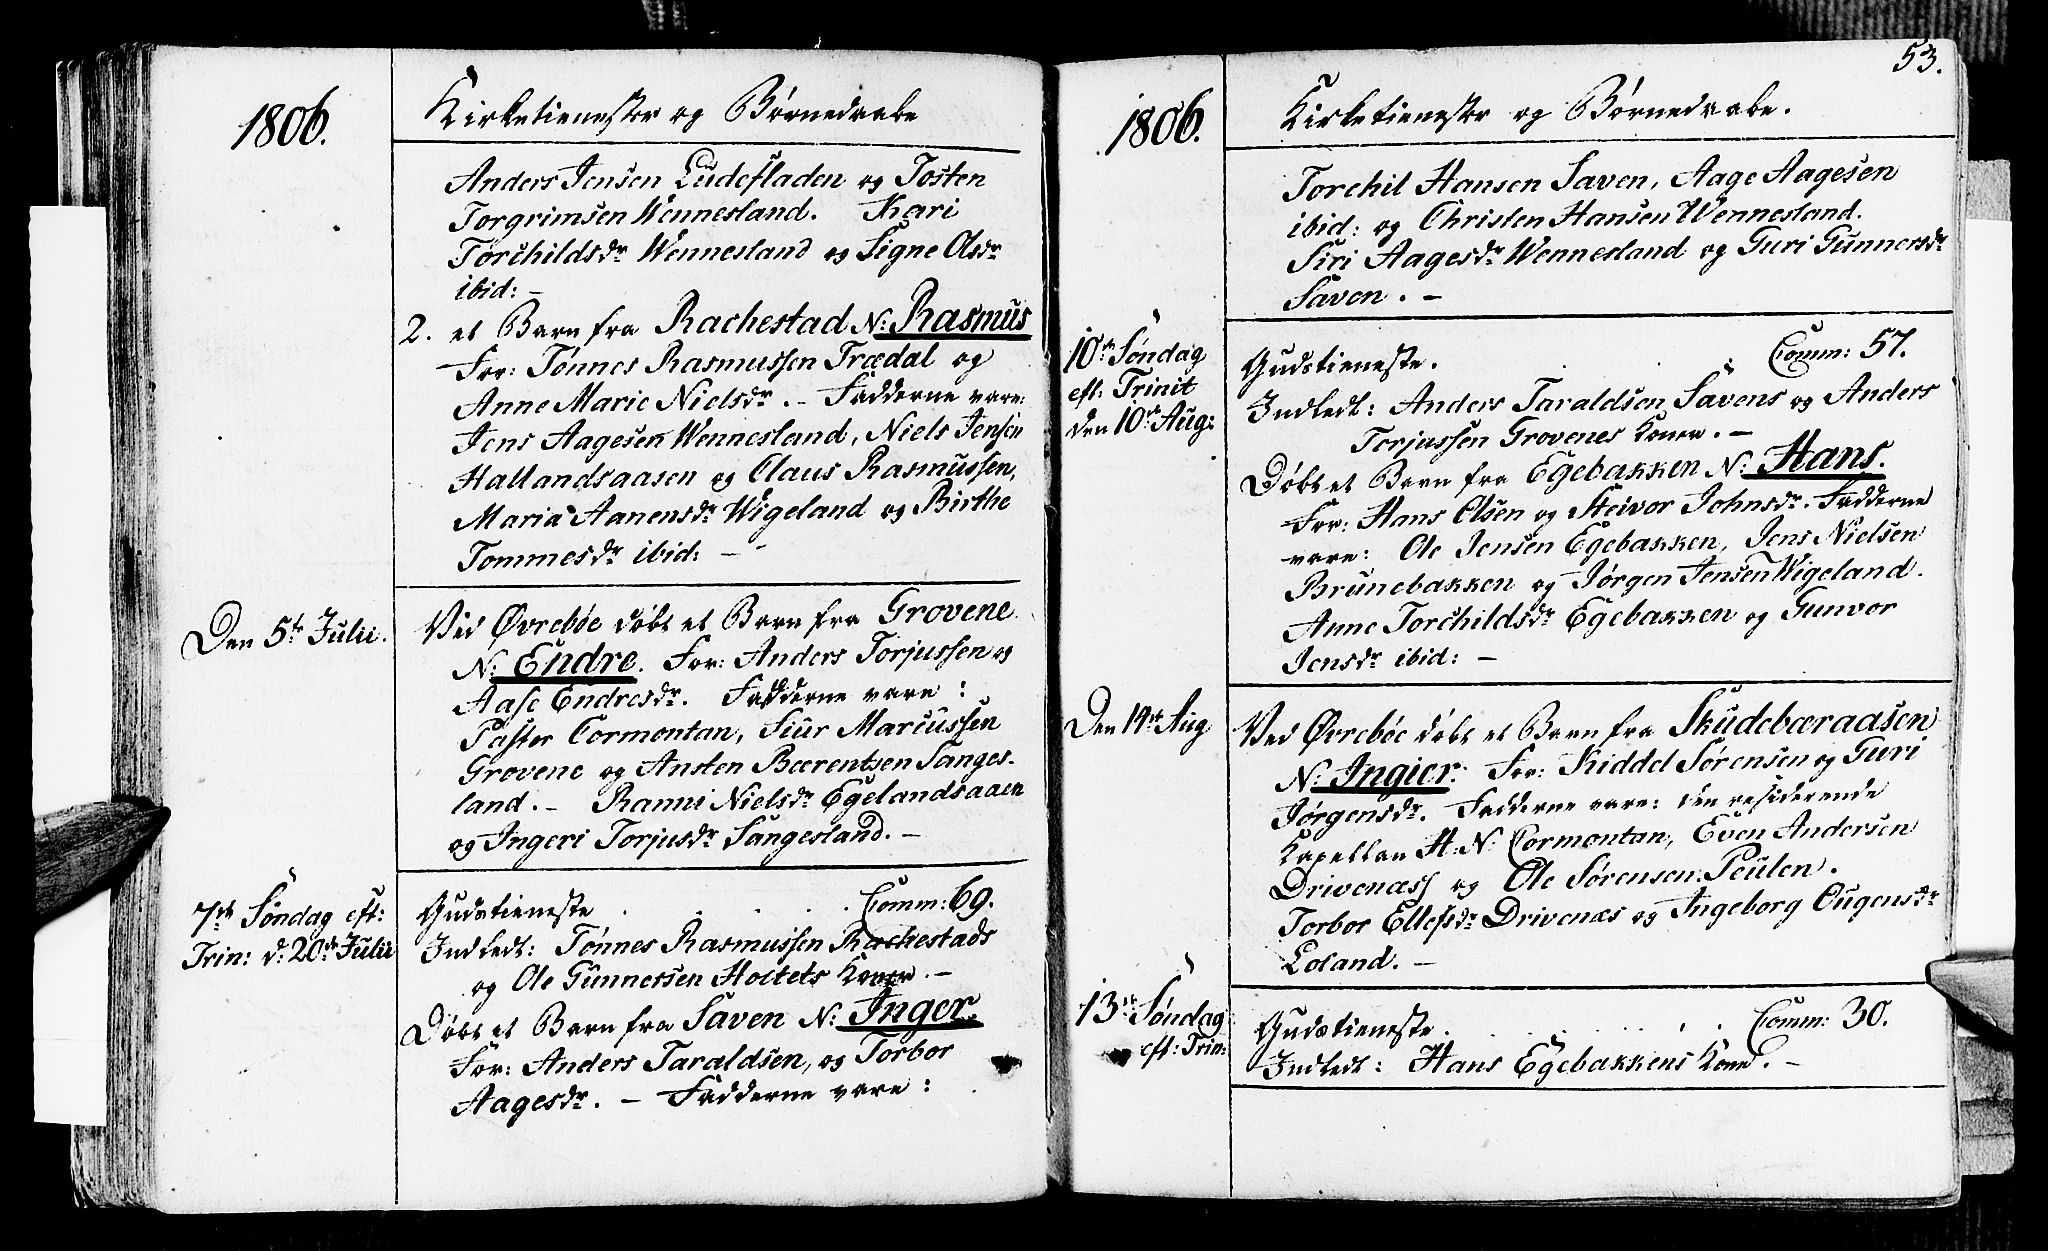 1806.
Kirketienester og Børnedaabe
Anders Jensen Ludefladen og Tosten
Torgrimsen Wennesland. Kari
Torchildsdr Wennesland og Signe Olsdr
ibid: -
2. et Barn fra Rachestad N: Rasmus
For: Tønnes Rasmussen Trædal og
Anne Marie Nielsdr. - Fadderne vare:
Jens Aagesen Wennesland, Niels Jensen
Hallandsaasen og Claus Rasmussen,
Maria Aanensdr Wigeland og Birthe
Tommesdr ibid: -
Den 5te Julii.
Ved Øvrebøe døbt et Barn fra Grovene
N: Endre. For: Anders Torjussen og
Aase Endresdr. Fadderne vare:
Pastor Cormontan, Siur Marcussen
Grovene og Ansten Bærentsen Sanges-
land. - Ranni Nielsdr Egelandsaaen
og Ingeri Torjusdr Sangesland. -
7de Søndag eft:
Trin: d: 20de Julii
Gudstieneste . . . . Comm: 69.
Indledt: Tønnes Rasmussen Rachestads
og Ole GunnersenHoltets Koner. -
Døbt et Barn fra Saven N: Inger.
For: Anders Taraldsen, og Torbor
Aagesdr. - Fadderne vare:
53.
1806.
Kirketienester og Børnedaabe.
Torchil Hansen Saven, Aage Aagesen
ibid: og Christen Hansen Wennesland.
Siri Aagesdr Wennesland og Guri Gunnersdr
Saven. -
10de Søndag
eft: Trinit
den 10de Aug:
Gudstieneste. . . Comm: 57.
Indledt: Anders Taraldsen Savens og Anders
Torjussen Grovenes Koner. -
Døbt et Barn fra Egebakken N: Hans.
For: Hans Olsen og Steivor Johnsdr. Fadderne
vare: Ole Jensen Egebakken, Jens Nielsen
Brunebakken og Jørgen Jensen Wigeland.
Anne Torchildsdr Egebakken og Gunvor
Jensdr ibid: -
Den 14de Aug
Ved Øvrebøe døbt et Barn fra Skudebæraasen
N: Ingier. For: Kiddel Sørensen og Guri
Jørgensdr. Fadderne vare: den residerende
Kapellan H: N: Cormontan, Even Andersen
Drivenæss og Ole Sørensen Peulen.
Torbor Ellefsdr Drivenæs og Ingeborg Ougensdr
Loland. -
13de Søndag
eft: Trin:
Gudstieneste. . . . . . . Comm: 30.
Indledt: Hans Egebakkens Kone. -